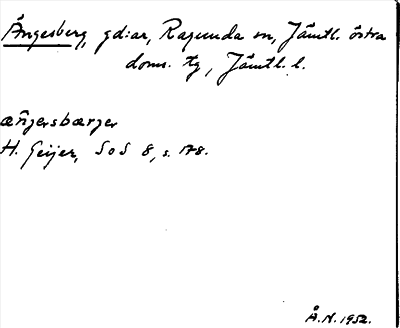 Ängesberg, gd:ar, Ragunda sn, Jämtl. östra
doms. tg, Jämtl. l.
æŋersbærjer
H. Geijer, SoS 8, s. 178.
Å.N. 1952.